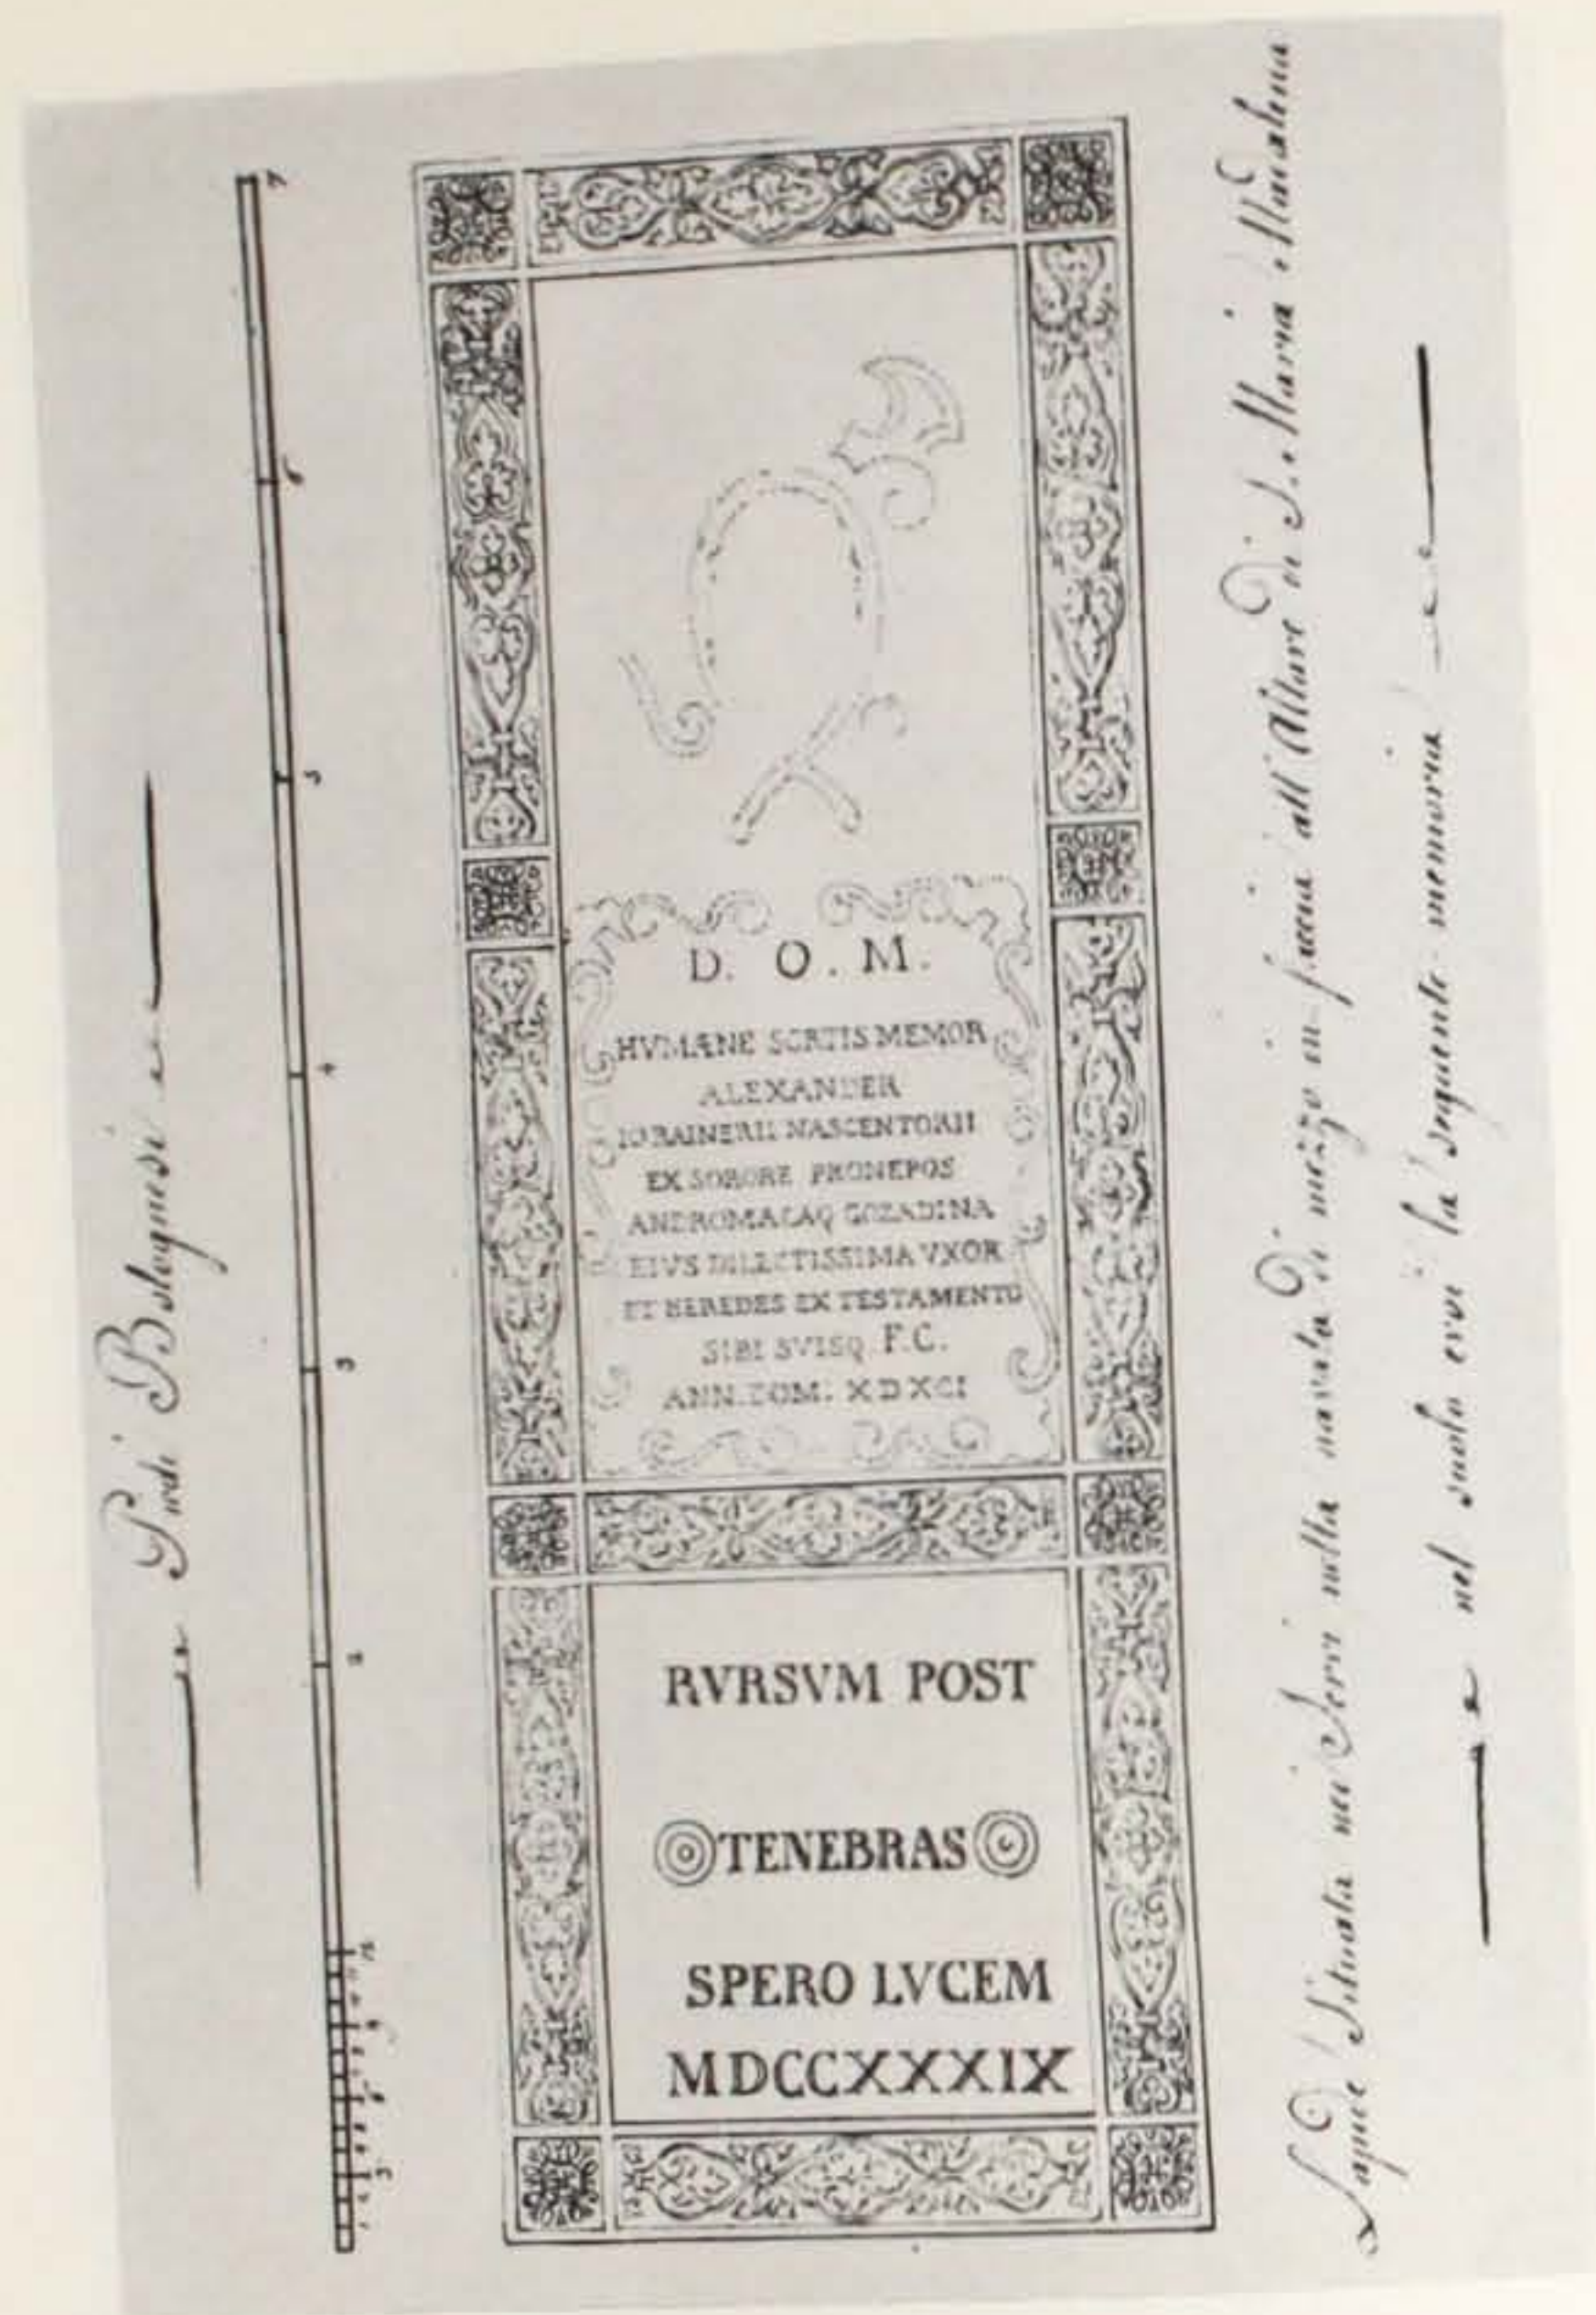 Piedi Bolognesi
7
6
5
4
3
2
12
9
6
3
D. O. M.
HVMÆNE SORTIS MEMOR
ALEXANDER
IO RAINERII NASCENTORII
EX SORORE PRONEPOS
ANDROMACAQ GOZADINA
EIVS DILECTISSIMA VXOR
ET HEREDES EX TESTAMENTO
SIBI SVISQ F.C.
ANN. DOM. XDXCI
RVRSVM POST
TENEBRAS
SPERO LVCEM
MDCCXXXIX
Lapide Situata nei Servi nella navata di mezzo in faccia all'Altare di S. Maria Madalena
nel suolo evi la seguente memoria